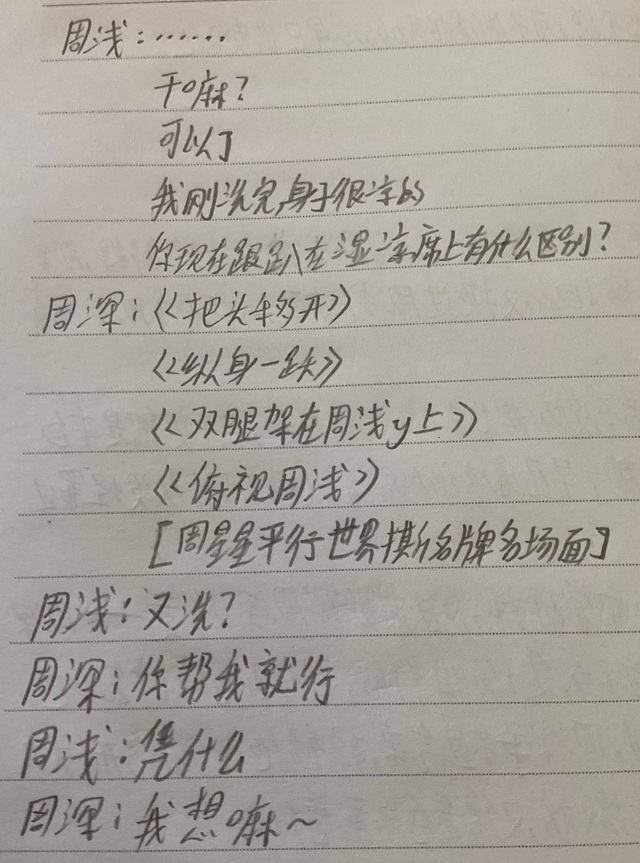 周浅：……
干嘛？
可以了
我刚洗完，身子很凉的
你现在跟趴在湿凉席上有什么区别？
周深：《把头移开》
《纵身一跃》
《双腿架在周浅y上》
《俯视周浅》
[周星星平行世界撕名牌名场面]
周浅：又洗？
周深：你帮我就行
周浅：凭什么
周深：我想嘛～